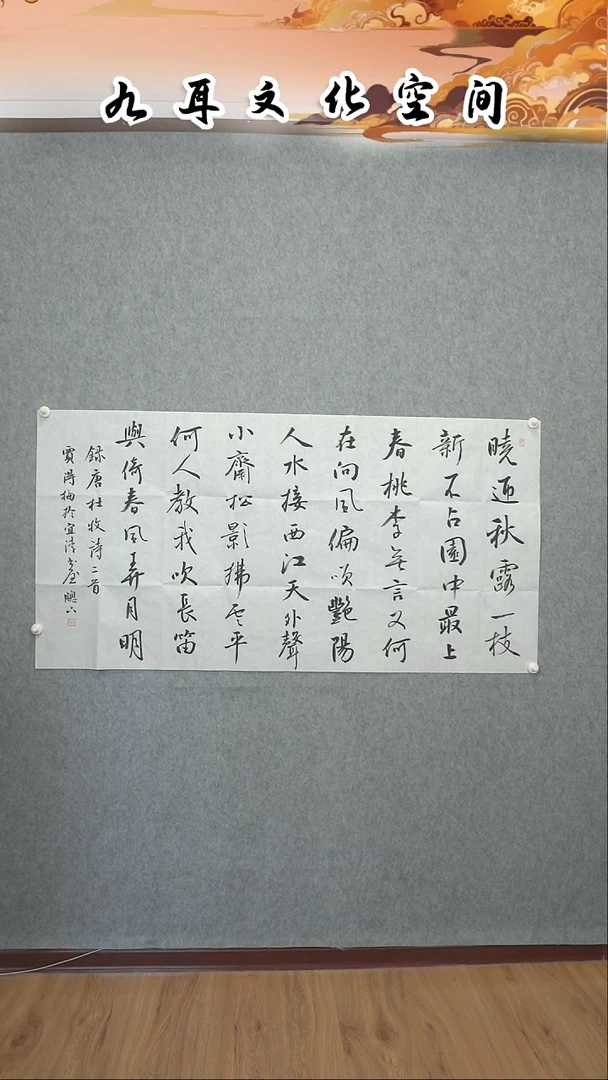 九耳文化空间
曉迎秋露一枝
新不占園中最上
春桃李無言又何
在向風偏咲艷陽
人水接西江天外聲
小齋松影拂雲平
何人教我吹長笛
與倚春風弄月明
錄唐杜牧詩二首
賈得梅於宜清書屋